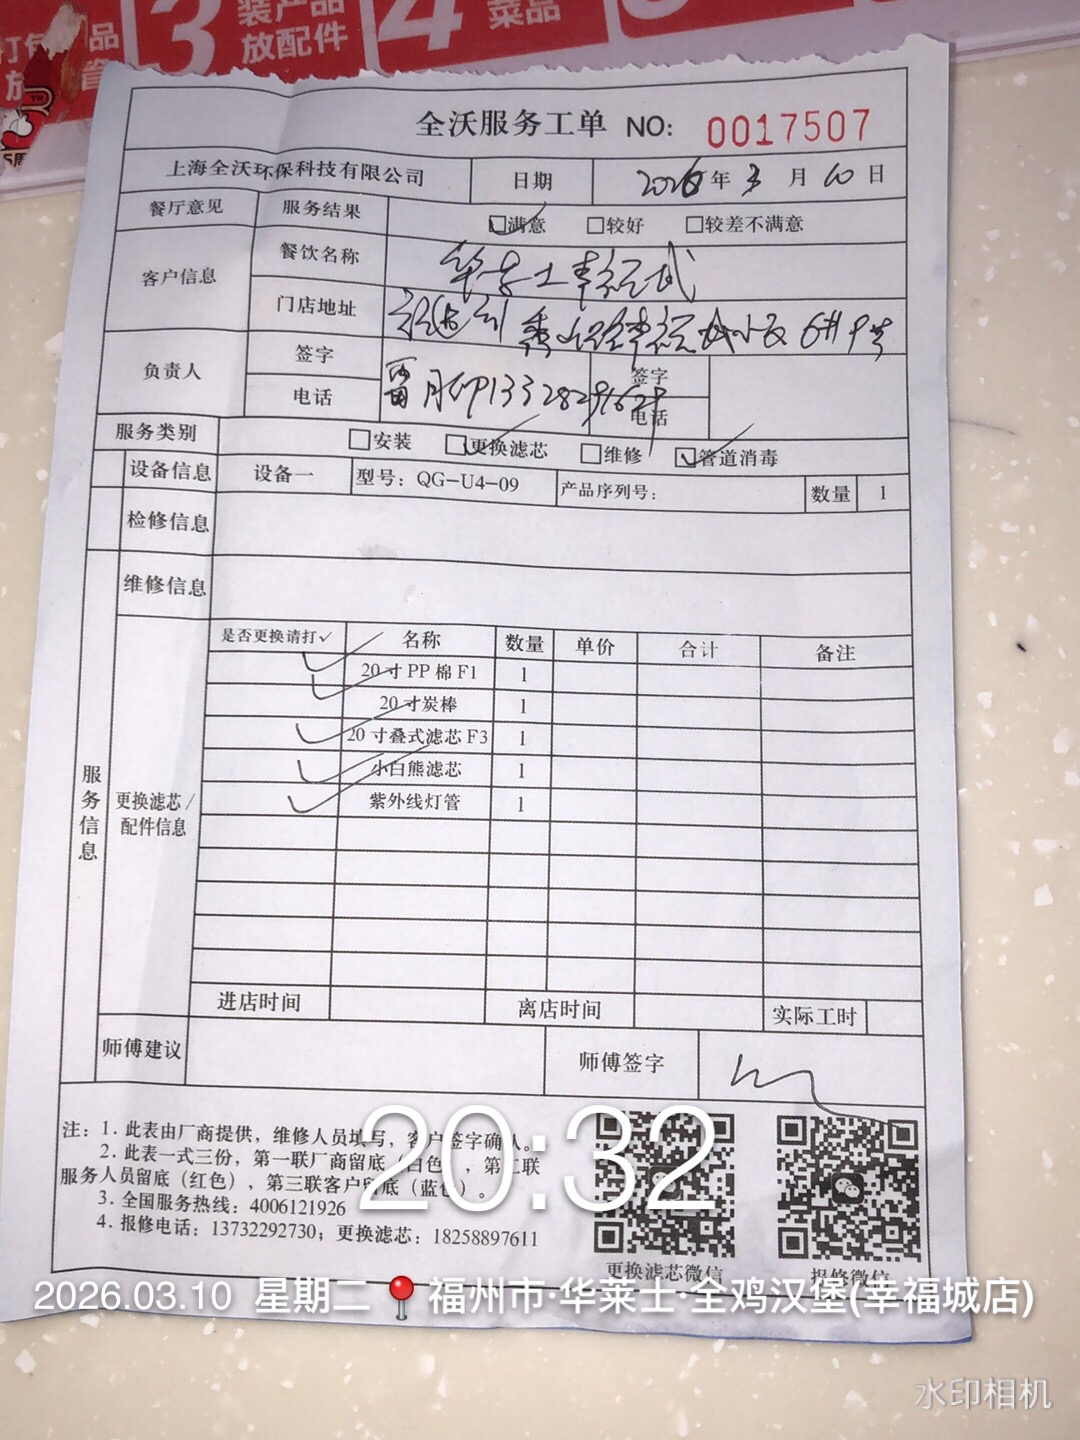 3
装产品
放配件
4
菜品
全沃服务工单 NO: 0017507
上海全沃环保科技有限公司 日期 2026年3月10日
餐厅意见 服务结果 ☑满意 □较好 □较差不满意
客户信息 餐饮名称 华莱士幸福城
门店地址 福州 秀山路幸福城小区6#9号
负责人 签字 签字
电话 电话
服务类别 □安装 ☑更换滤芯 □维修 ☑管道消毒
设备信息 设备一 型号：QG-U4-09 产品序列号： 数量 1
检修信息
维修信息
是否更换请打✓ 名称 数量 单价 合计 备注
✓ 20寸PP棉F1 1
✓ 20寸炭棒 1
✓ 20寸叠式滤芯F3 1
✓ 小白熊滤芯 1
✓ 紫外线灯管 1
服务信息
更换滤芯/
配件信息
进店时间 离店时间 实际工时
师傅建议 师傅签字
注：1. 此表由厂商提供，维修人员填写，客户签字确认。
2. 此表一式三份，第一联厂商留底（白色），第二联
服务人员留底（红色），第三联客户留底（蓝色）。
3. 全国服务热线：4006121926
4. 报修电话：13732292730；更换滤芯：18258897611
更换滤芯微信 报修微信
20:32
2026.03.10 星期二 福州市·华莱士·全鸡汉堡(幸福城店)
水印相机